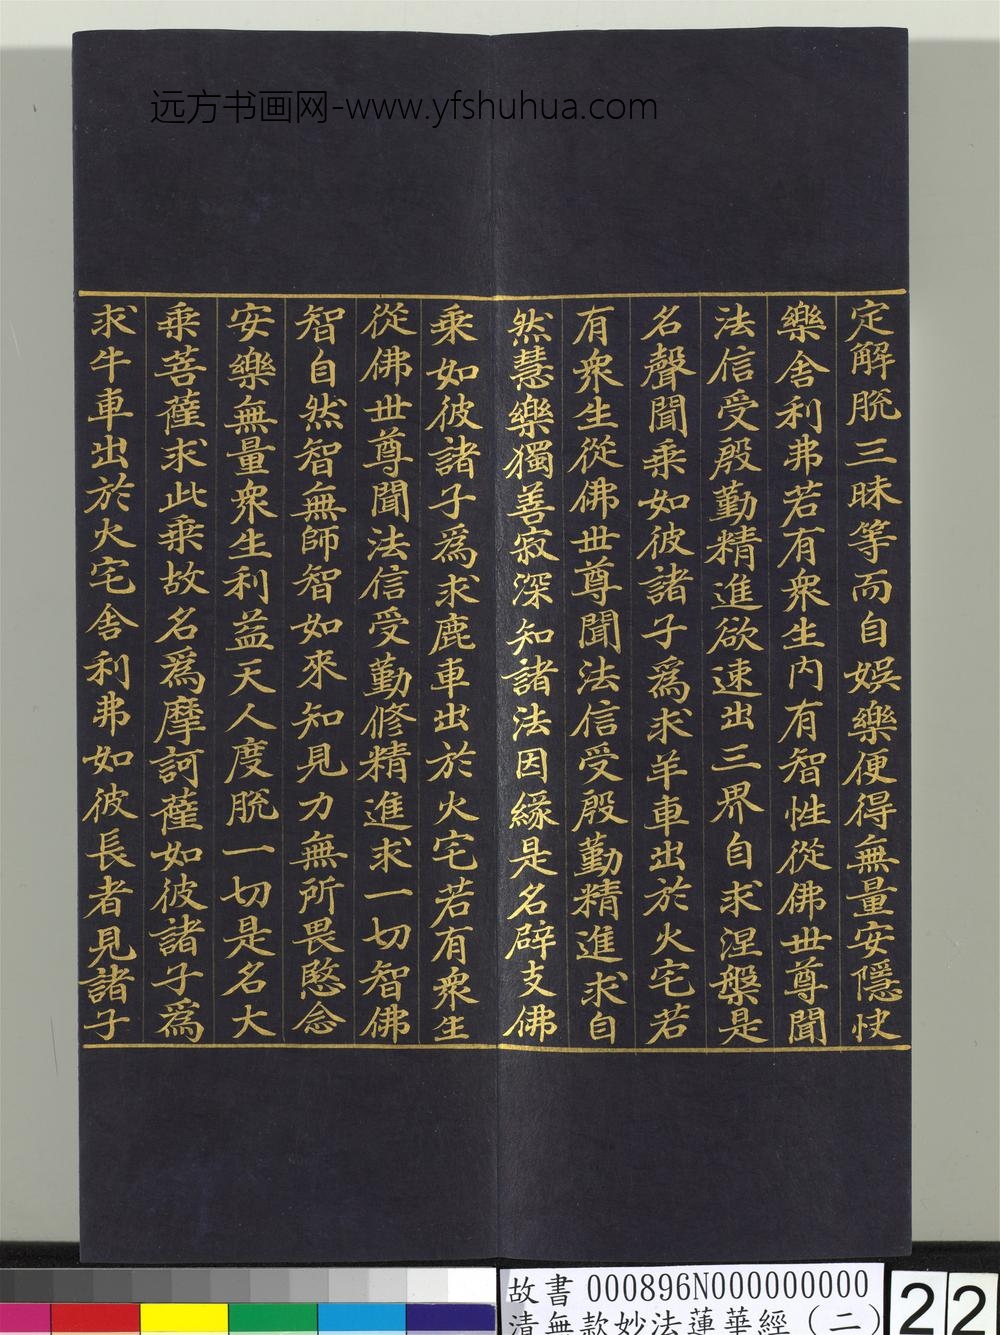 远方书画网-www.yfshuhua.com
定解脱三昧等而自娯樂便得無量安隱快
樂舍利弗若有衆生内有智性從佛世尊聞
法信受殷勤精進欲速出三界自求涅槃是
名聲聞乗如彼諸子爲求羊車出於火宅若
有衆生從佛世尊聞法信受殷勤精進求自
然慧樂獨善寂深知諸法因緣是名辟支佛
乗如彼諸子爲求鹿車出於火宅若有衆生
從佛世尊聞法信受勤修精進求一切智佛
智自然智無師智如來知見力無所畏愍念
安樂無量衆生利益天人度脱一切是名大
乗菩薩求此乗故名爲摩訶薩如彼諸子爲
求牛車出於火宅舍利弗如彼長者見諸子
故書 000896N000000000
清無款妙法蓮華經（二）
22